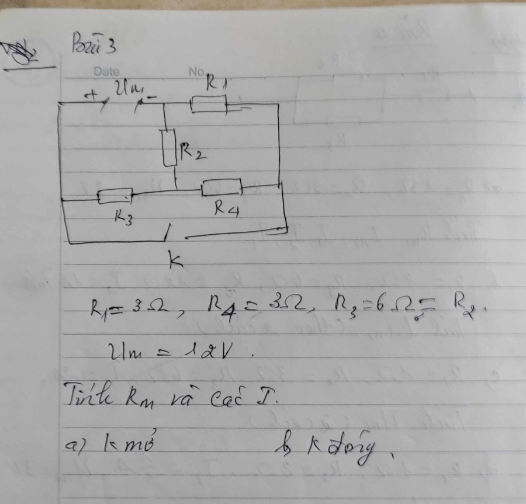 Bài 3
Date No.
+ Um - R1
R2
R3 R4
K
R1 = 3Ω, R4 = 3Ω, R3 = 6Ω = R2.
Um = 12V.
Tính Rm và các I.
a) K mở b, K đóng.